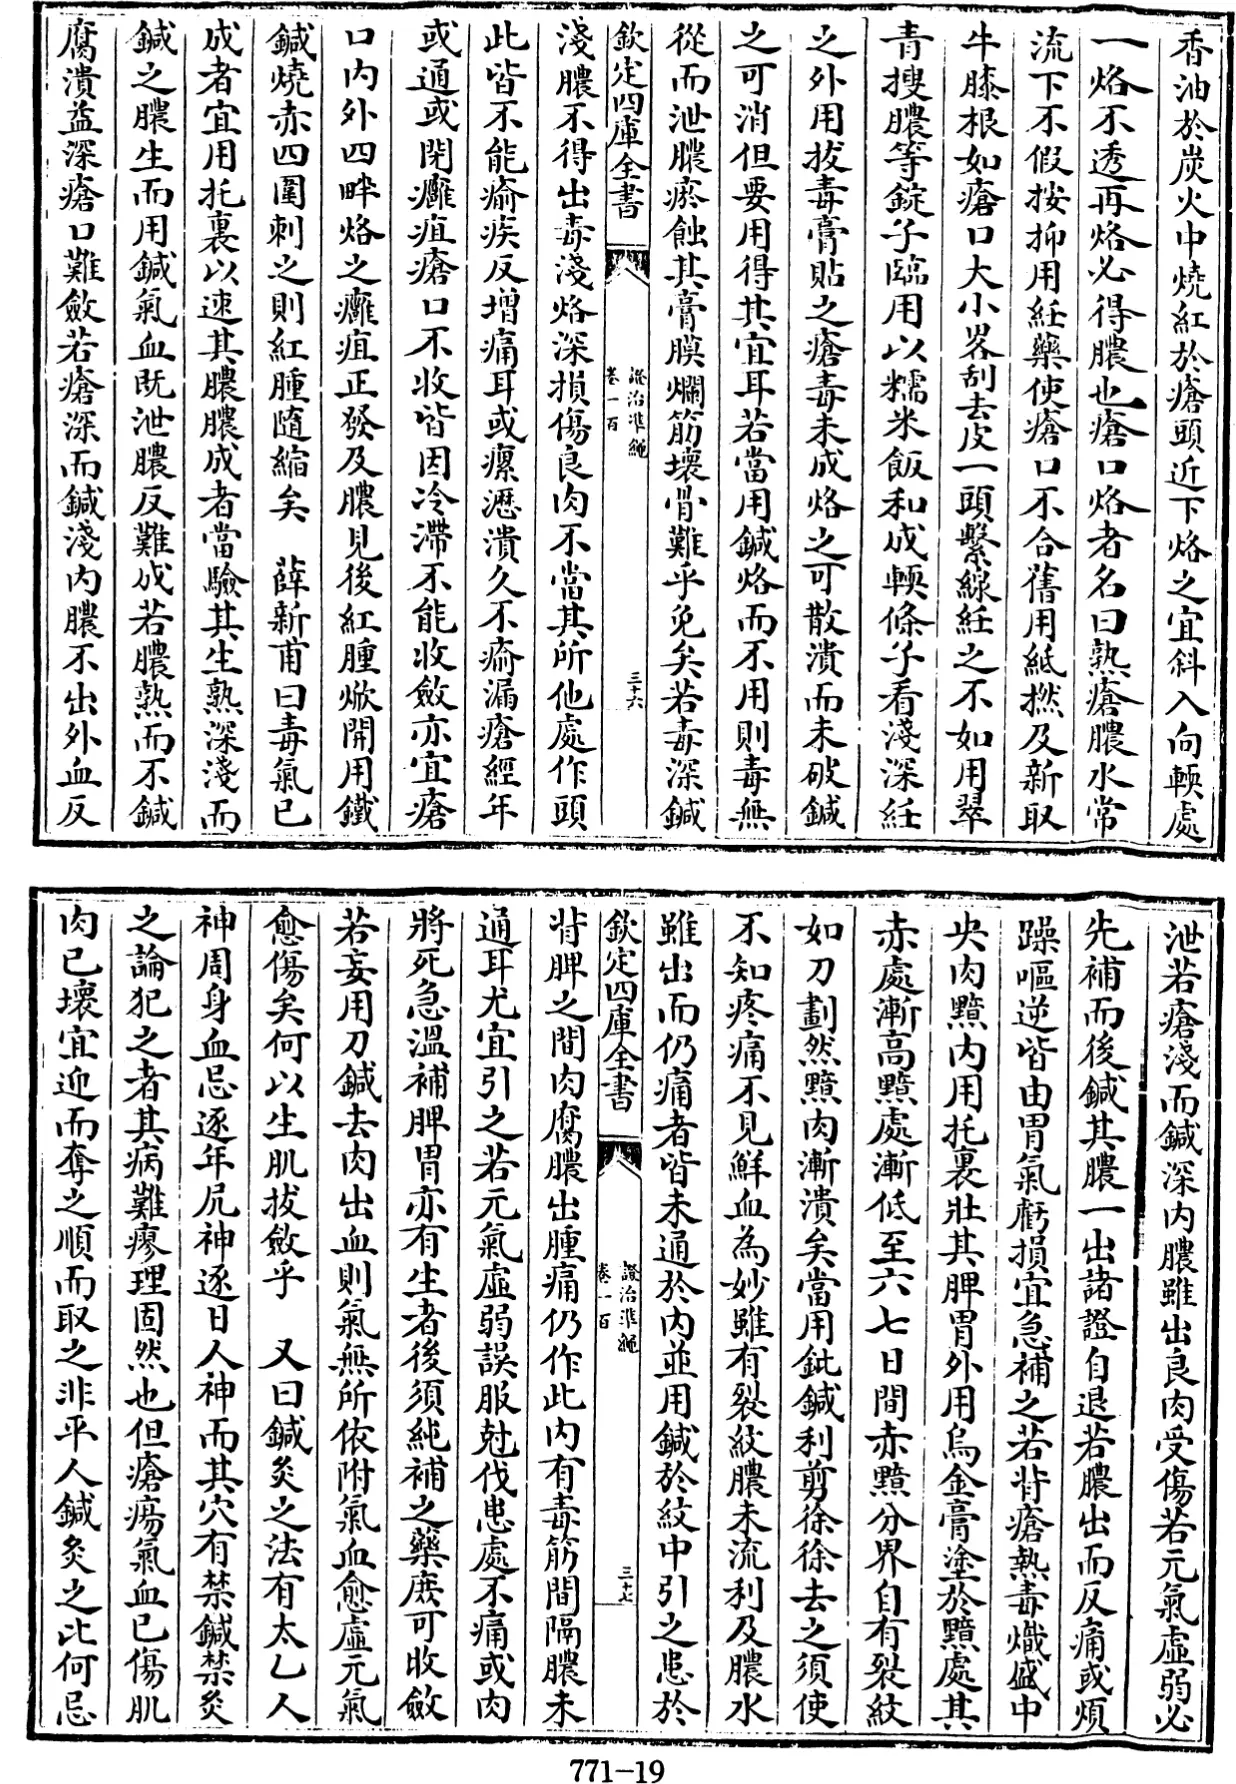 香油於炭火中燒紅於瘡頭近下烙之宜斜入向輭處
一烙不透再烙必得膿也瘡口烙者名曰熟瘡膿水常
流下不假按抑用紝藥使瘡口不合舊用紙撚及新取
牛膝根如瘡口大小畧刮去皮一頭繫線紝之不如用翠
青搜膿等錠子臨用以糯米飯和成輭條子看淺深紝
之外用拔毒膏貼之瘡毒未成烙之可散潰而未破鍼
之可消但要用得其宜耳若當用鍼烙而不用則毒無
從而泄膿瘀蝕其膏膜爛筋壞骨難乎免矣若毒深鍼
欽定四庫全書
證治準繩
卷一百
三十六
淺膿不得出毒淺烙深損傷良肉不當其所他處作頭
此皆不能瘉疾反增痛耳或瘰癧潰久不瘉漏瘡經年
或通或閉癰疽瘡口不收皆因冷滯不能收斂亦宜瘡
口内外四畔烙之癰疽正發及膿見後紅腫焮開用鐵
鍼燒赤四圍刺之則紅腫隨縮矣　薛新甫曰毒氣已
成者宜用托裏以速其膿膿成者當驗其生熟深淺而
鍼之膿生而用鍼氣血既泄膿反難成若膿熟而不鍼
腐潰益深瘡口難斂若瘡深而鍼淺内膿不出外血反
泄若瘡淺而鍼深内膿雖出良肉受傷若元氣虛弱必
先補而後鍼其膿一出諸證自退若膿出而反痛或煩
躁嘔逆皆由胃氣虧損宜急補之若背瘡熱毒熾盛中
央肉黯内用托裏壯其脾胃外用烏金膏塗於黯處其
赤處漸高黯處漸低至六七日間赤黯分界自有裂紋
如刀劃然黯肉漸潰矣當用鈚鍼利剪徐徐去之須使
不知疼痛不見鮮血為妙雖有裂紋膿未流利及膿水
雖出而仍痛者皆未通於内並用鍼於紋中引之患於
欽定四庫全書
證治準繩
卷一百
三十七
背脾之間肉腐膿出腫痛仍作此内有毒筋間隔膿未
通耳尤宜引之若元氣虛弱誤服尅伐患處不痛或肉
將死急溫補脾胃亦有生者後須純補之藥庶可收斂
若妄用刀鍼去肉出血則氣無所依附氣血愈虛元氣
愈傷矣何以生肌拔斂乎　又曰鍼灸之法有太乙人
神周身血忌逐年尻神逐日人神而其穴有禁鍼禁灸
之論犯之者其病難瘳理固然也但瘡瘍氣血已傷肌
肉已壞宜迎而奪之順而取之非平人鍼灸之比何忌
771—19